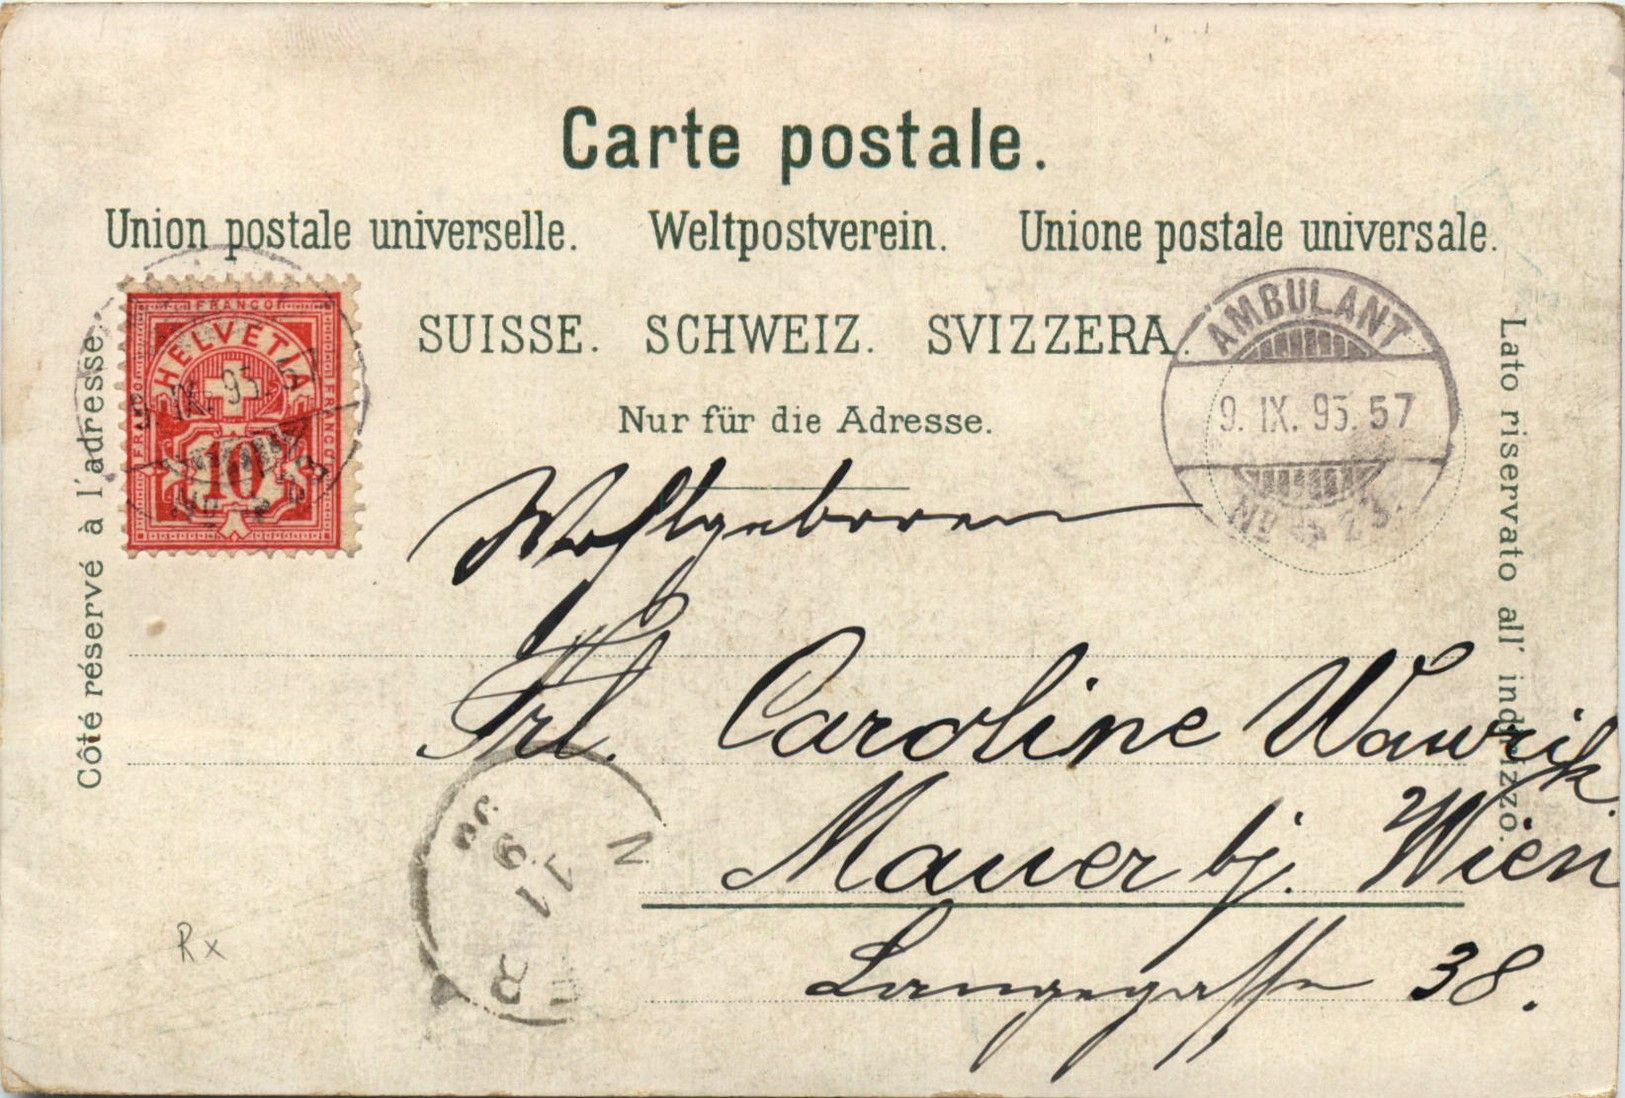 Carte postale.
Union postale universelle. Weltpostverein. Unione postale universale.
SUISSE. SCHWEIZ. SVIZZERA.
Nur für die Adresse.
Côté réservé à l'adresse.
Lato riservato all' indirizzo.
FRANCO
HELVETIA
FRANCO
FRANCO
10
IX. 95.
AMBULANT
9. IX. 95. 57
No
Wohlgeboren
Frl. Caroline Wawrik
Mauer bj. Wien
Langegasse 38.
11
9
Rx